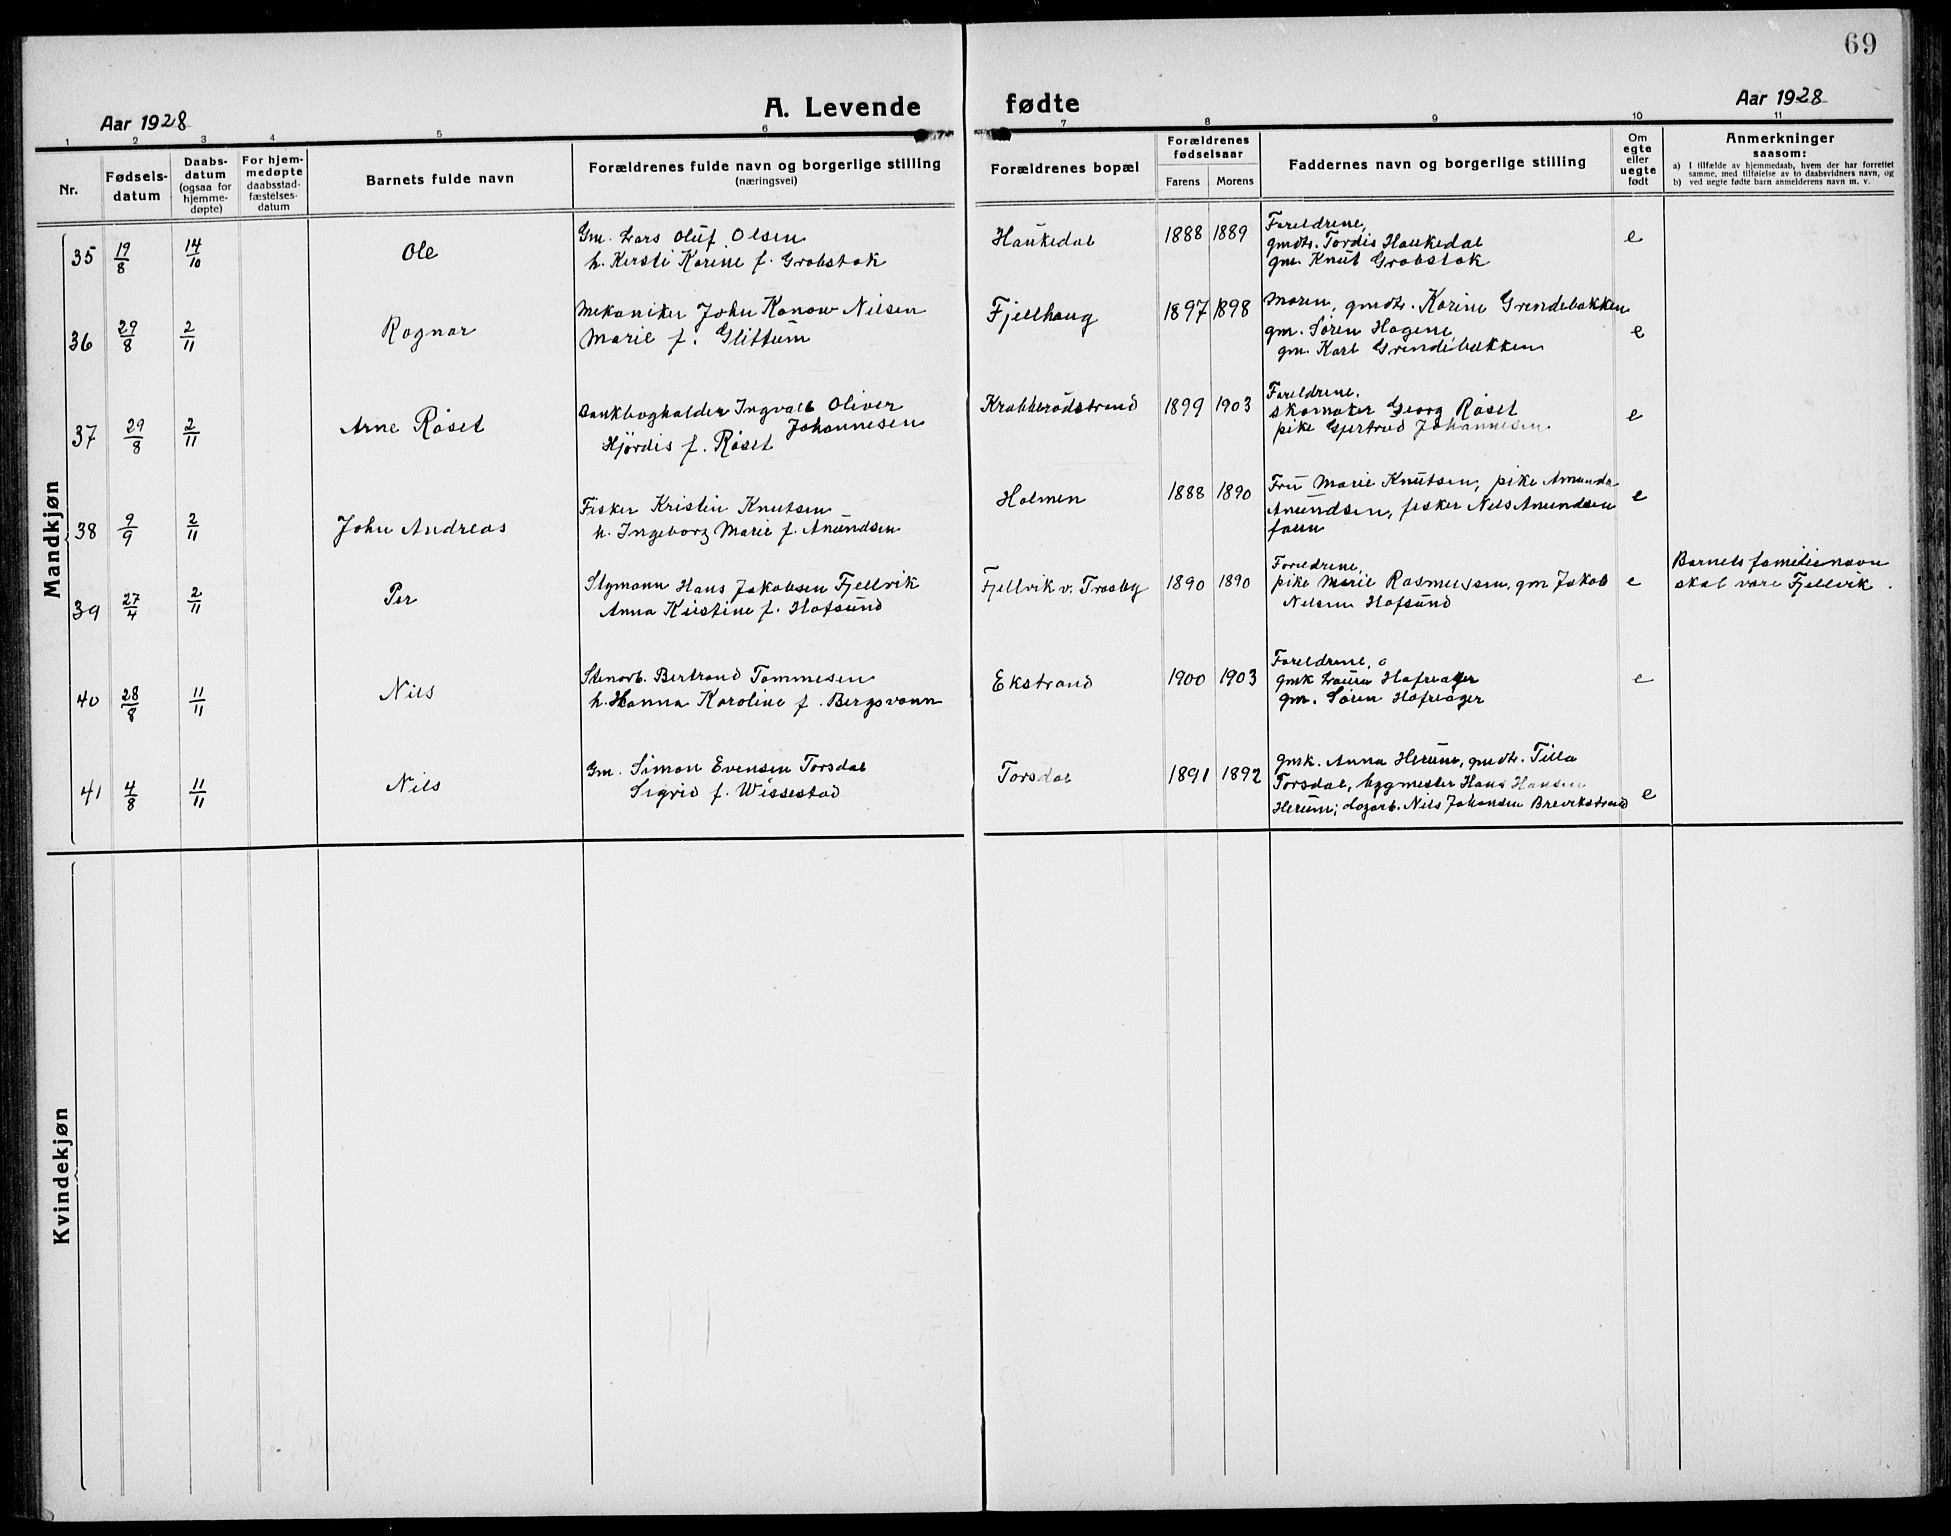 69
Aar 1928
A. Levende
fødte
Aar 1928
1 2 3 4 5 6 7 8 9 10 11
Nr.
Fødsels-
datum
Daabs-
datum
(ogsaa for
hjemme-
døpte)
For hjem-
medøpte
daabsstad-
fæstelses-
datum
Barnets fulde navn
Forældrenes fulde navn og borgerlige stilling
(næringsvei)
Forældrenes bopæl
Forældrenes
fødselsaar
Farens Morens
Faddernes navn og borgerlige stilling
Om
egte
eller
uegte
født
Anmerkninger
saasom:
a) I tilfælde av hjemmedaab, hvem der har forrettet
samme, med tilføielse av to daabsvidners navn, og
b) ved uegte fødte barn anmelderens navn m. v.
Mandkjøn
35 19/8 14/10 Ole
Gm. Lars Oluf Olsen
h. Kersti Karine f. Grobstok
Haukedal 1888 1889
Foreldrene,
gmdtr. Tordis Haukedal
gm. Knut Grobstok
e
36 29/8 2/11 Ragnar
Mekaniker John Konow Nilsen
Marie f. Glittum
Fjellhaug 1897 1898
Moren, gmdtr. Karine Grendebakken
gm. Søren Hagene
gm. Karl Grendebakken
e
37 29/8 2/11 Arne Røset
Bankbogholder Ingvald Oliver
Johannesen
Hjørdis f. Røset
Krabberødstrand 1899 1903
Foreldrene,
skomaker Georg Røset
pike Gjertrud Johannesen
e
38 9/9 2/11 John Andreas
Fisker Kristin Knutsen
h. Ingeborg Marie f. Amundsen
Holmen 1888 1890
Fru Marie Knutsen, pike Amunda
Amundsen, fisker Nils Amundsen
faren
e
39 27/4 2/11 Per
Styrmann Hans Jakobsen Fjellvik
Anna Kristine f. Hafsund
Fjellvik v. Trosby 1890 1890
Foreldrene,
pike Marie Rasmussen, gm Jakob
Nilsen Hafsund
e
Barnets familienavn
skal være Fjellvik.
40 28/8 11/11 Nils
Stenarb. Bertrand Tommesen
h. Hanna Karoline f. Bergsvann
Ekstrand 1900 1903
Foreldrene,
gmk Laura Hafreager
gm. Søren Hafreager
e
41 4/8 11/11 Nils
Gm. Simon Evensen Torsdal
Sigrid f. Wissestad
Torsdal 1891 1892
gmk. Anna Herum, gmdtr. Tilla
Torsdal, bygmester Hans Hansen
Herum; dagarb. Nils Johansen Breviksstrand
e
Kvindekjøn